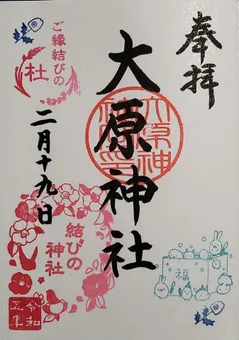 奉拝
大原神社
大原神
ご縁結びの
社
二月十九日
結びの
神社
福
令和
五年